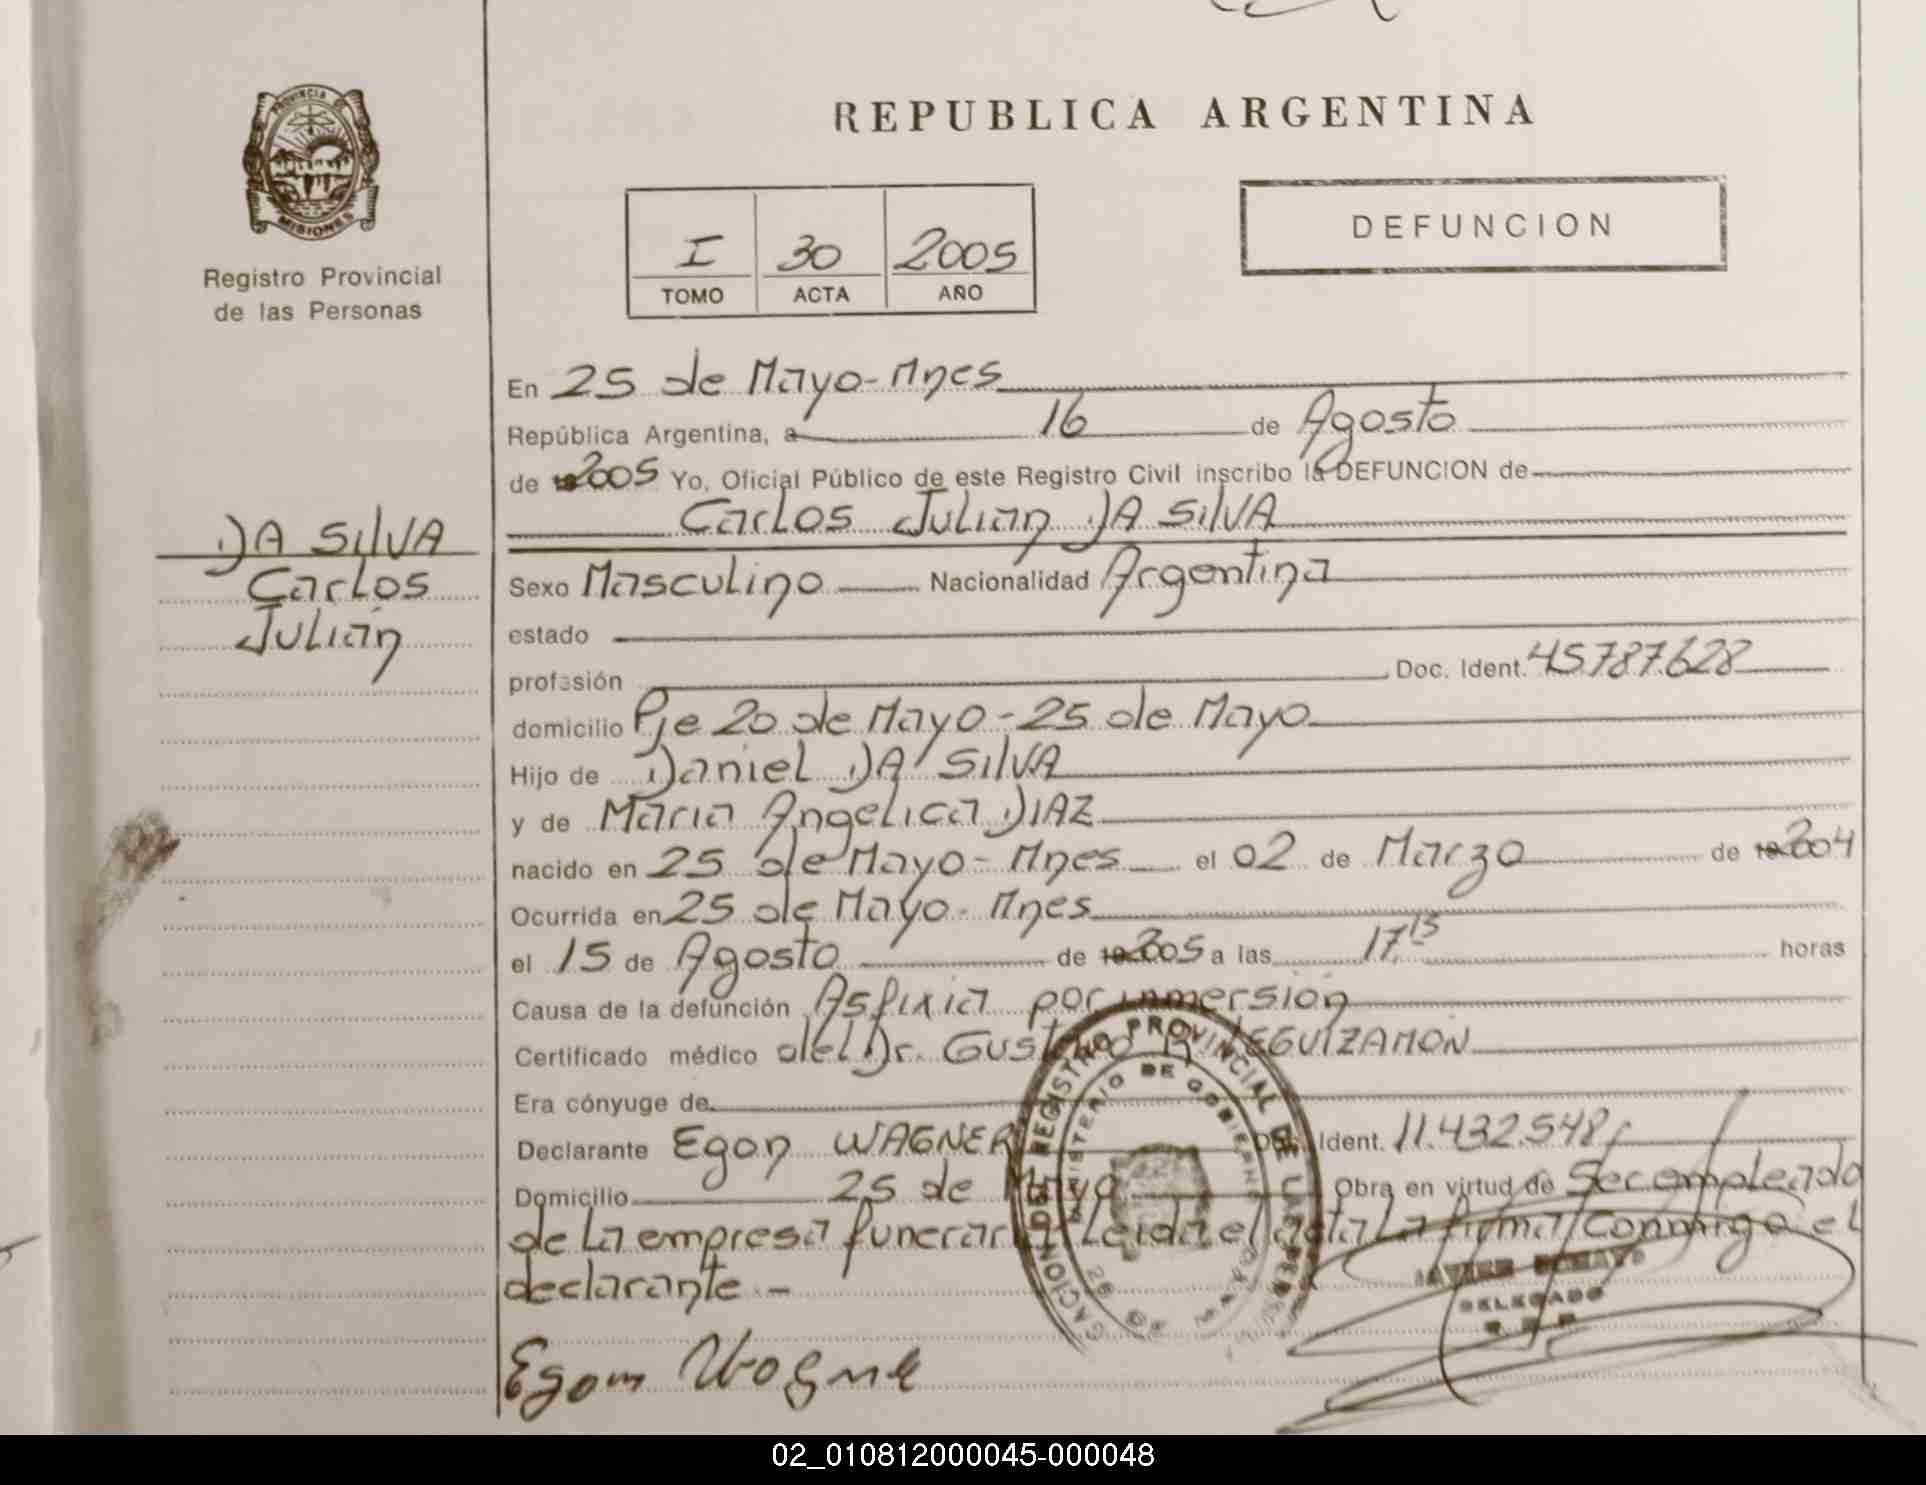 REPUBLICA ARGENTINA
PROVINCIA DE
MISIONES
Registro Provincial
de las Personas
I 30 2005
TOMO ACTA AÑO
DEFUNCION
DA SILVA
Carlos
Julián
En 25 de Mayo-Mnes
República Argentina, a 16 de Agosto
de 2005 Yo, Oficial Público de este Registro Civil inscribo la DEFUNCION de
Carlos Julian DA SILVA
Sexo Masculino Nacionalidad Argentina
estado
profesión Doc. Ident. 45787.628
domicilio Pje 20 de Mayo-25 de Mayo
Hijo de Daniel DA SILVA
y de Maria Angelica DIAZ
nacido en 25 de Mayo-Mnes el 02 de Marzo de 2004
Ocurrida en 25 de Mayo-Mnes
el 15 de Agosto de 2005 a las 17.15 horas
Causa de la defunción Asfixia por inmersion
Certificado médico del Dr. Gustavo R LEGUIZAMON
Era cónyuge de
Declarante Egon WAGNER Doc. Ident. 11.432.548
Domicilio 25 de Mayo Obra en virtud de Ser empleado
de La empresa funeraria Leida el acta La firma conmigo el
declarante -
REGISTRO PROVINCIAL DE LAS
MINISTERIO DE GOBIERNO
25 DE MAYO
DELEGADO
Egon Wagner
02_010812000045-000048